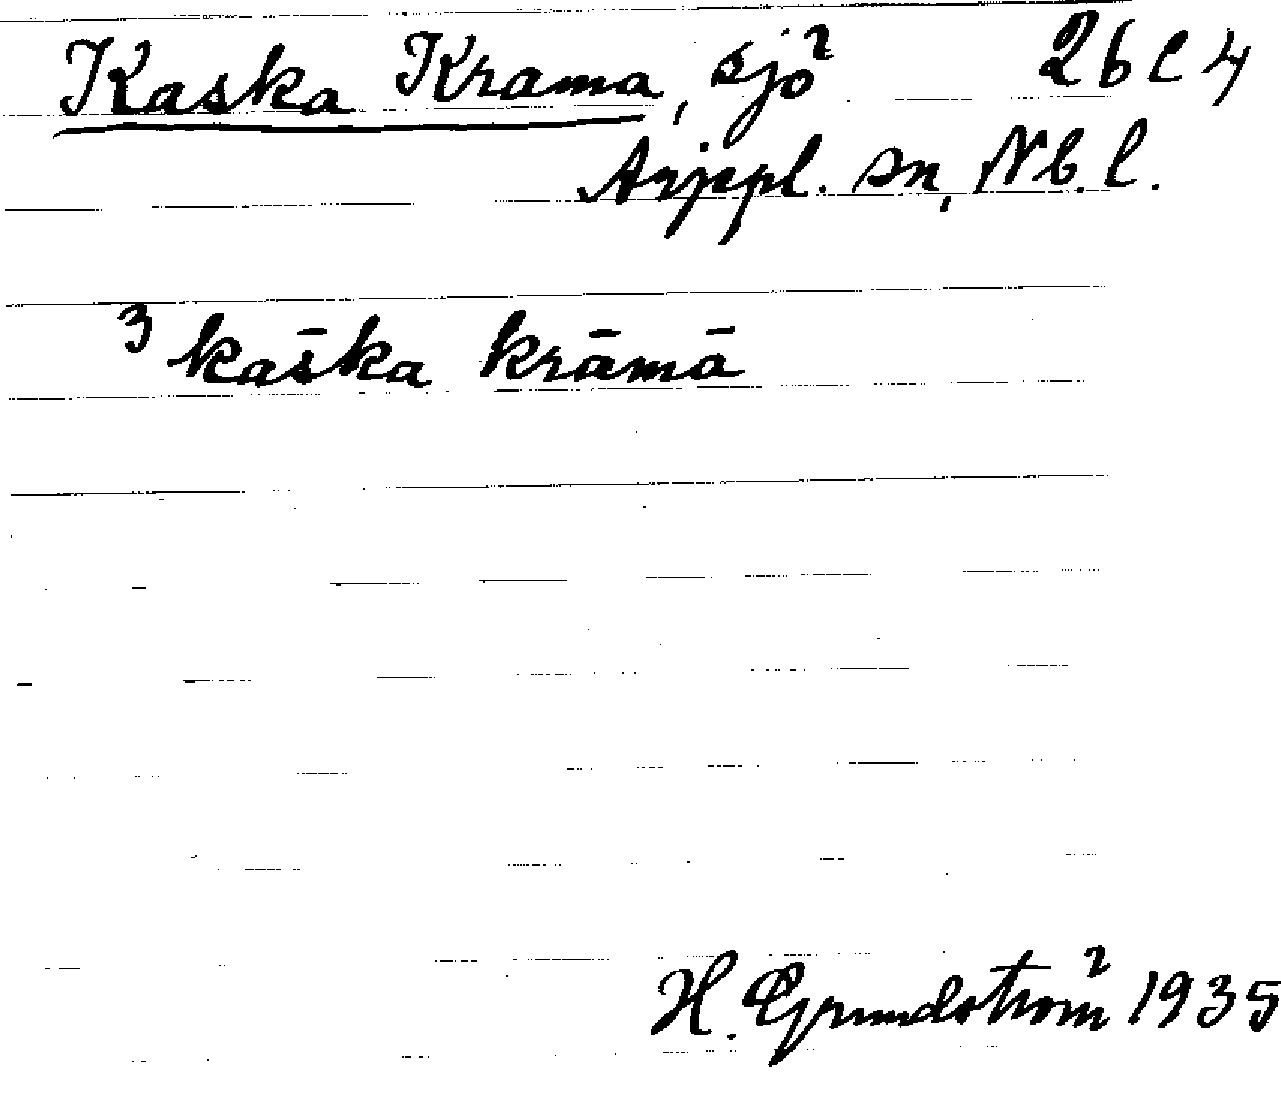 Kaska Krama, sjö 26 C 4
Arjepl. sn, Nb. l.
³ kas̄ka krāmā
H. Grundström 1935